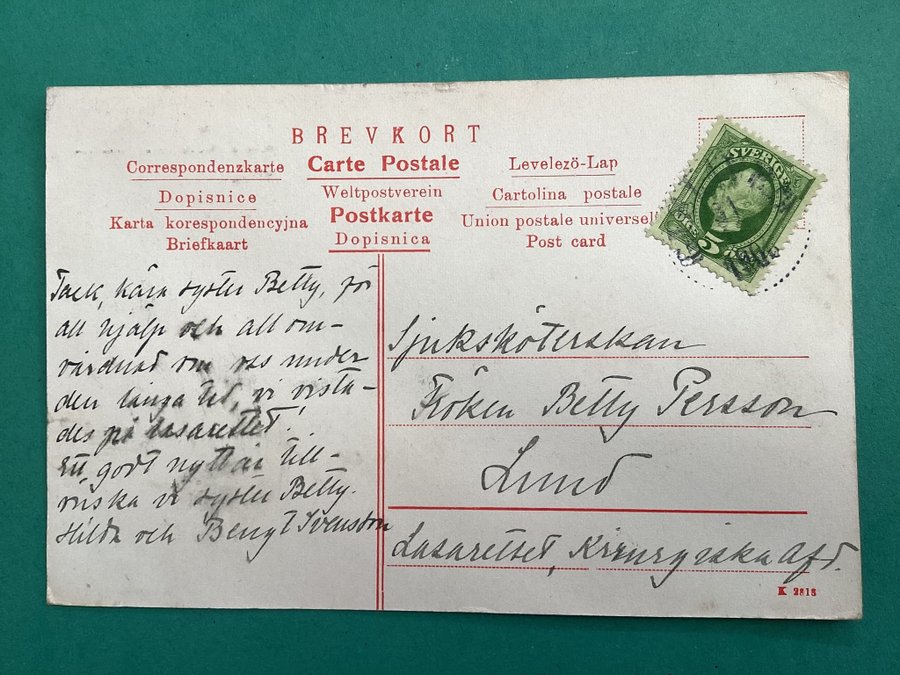 BREVKORT
Correspondenzkarte Carte Postale Levelezö-Lap
Dopisnice Weltpostverein Cartolina postale
Karta korespondencyjna Postkarte Union postale universell
Briefkaart Dopisnica Post card
SVERIGE
5
Tack, kära syster Betty, för
all hjälp och all om-
vårdnad om oss under
den långa tid, vi vista-
des på lasarettet!
Ett godt nytt år till-
önska vi syster Betty.
Hilda och Bengt Svensson
Sjuksköterskan
Fröken Betty Persson
Lund
Lasarettet, Kirurgiska Afd.
K 2818